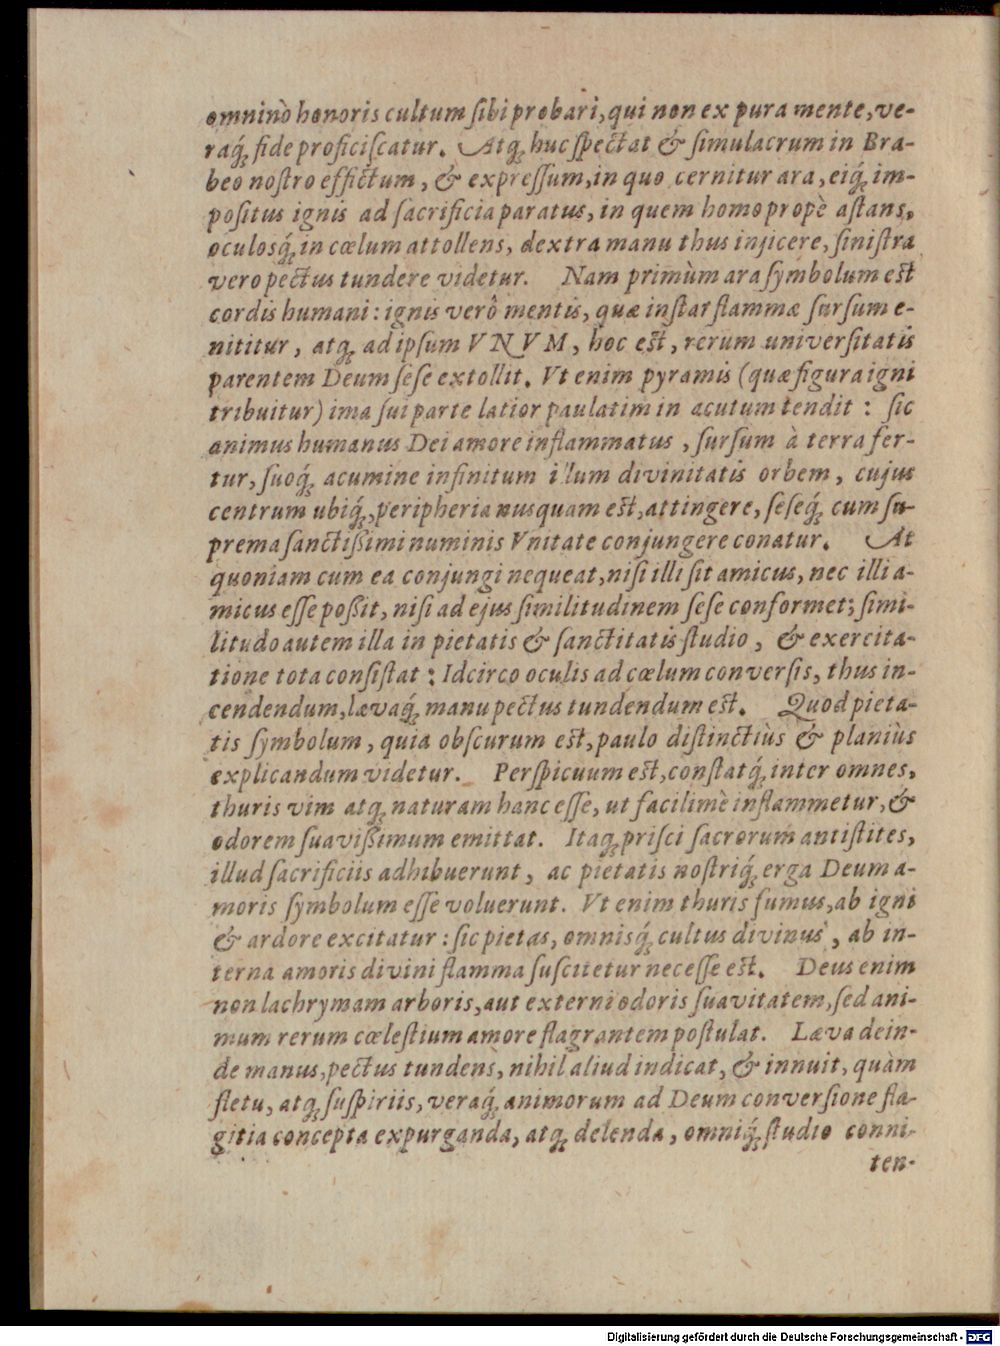 omninò honoris cultum ſibi probari, qui non ex pura mente, ve-
raq́; fide proficiſcatur. Atq; huc ſpectat & ſimulacrum in Bra-
beo noſtro effictum, & expreſſum, in quo cernitur ara, eiq́; im-
poſitus ignis ad ſacrificia paratus, in quem homo propè aſtans,
oculosq́; in cœlum attollens, dextra manu thus injicere, ſiniſtra
vero pectus tundere videtur. Nam primùm ara ſymbolum eſt
cordis humani: ignis verò mentis, quæ inſtar flammæ ſurſum e-
nititur, atq; ad ipſum VNVM, hoc eſt, rerum univerſitatis
parentem Deum ſeſe extollit. Vt enim pyramis (quæ figura igni
tribuitur) ima ſui parte latior paulatim in acutum tendit: ſic
animus humanus Dei amore inflammatus, ſurſum à terra fer-
tur, ſuoq́; acumine infinitum illum divinitatis orbem, cujus
centrum ubiq́;, peripheria nusquam eſt, attingere, ſeſeq́; cum ſu-
prema ſanctiſſimi numinis Vnitate conjungere conatur. At
quoniam cum ea conjungi nequeat, niſi illi ſit amicus, nec illi a-
micus eſſe poſſit, niſi ad ejus ſimilitudinem ſeſe conformet; ſimi-
litudo autem illa in pietatis & ſanctitatis ſtudio, & exercita-
tione tota conſiſtat: Idcirco oculis ad cœlum converſis, thus in-
cendendum, lævaq́; manu pectus tundendum eſt. Quod pieta-
tis ſymbolum, quia obſcurum eſt, paulo diſtinctiùs & planiùs
explicandum videtur. Perſpicuum eſt, conſtatq́; inter omnes,
thuris vim atq; naturam hanc eſſe, ut facilimè inflammetur, &
odorem ſuaviſſimum emittat. Itaq; priſci ſacrorum antiſtites,
illud ſacrificiis adhibuerunt, ac pietatis noſtriq́; erga Deum a-
moris ſymbolum eſſe voluerunt. Vt enim thuris fumus, ab igni
& ardore excitatur: ſic pietas, omnisq́; cultus divinus, ab in-
terna amoris divini flamma ſuſcitetur neceſſe eſt. Deus enim
non lachrymam arboris, aut externi odoris ſuavitatem, ſed ani-
mum rerum cœleſtium amore flagrantem poſtulat. Læva dein-
de manus, pectus tundens, nihil aliud indicat, & innuit, quàm
fletu, atq; ſuſpiriis, veraq́; animorum ad Deum converſione fla-
gitia concepta expurganda, atq; delenda, omniq́; ſtudio conni-
ten-
Digitalisierung gefördert durch die Deutsche Forschungsgemeinschaft - DFG